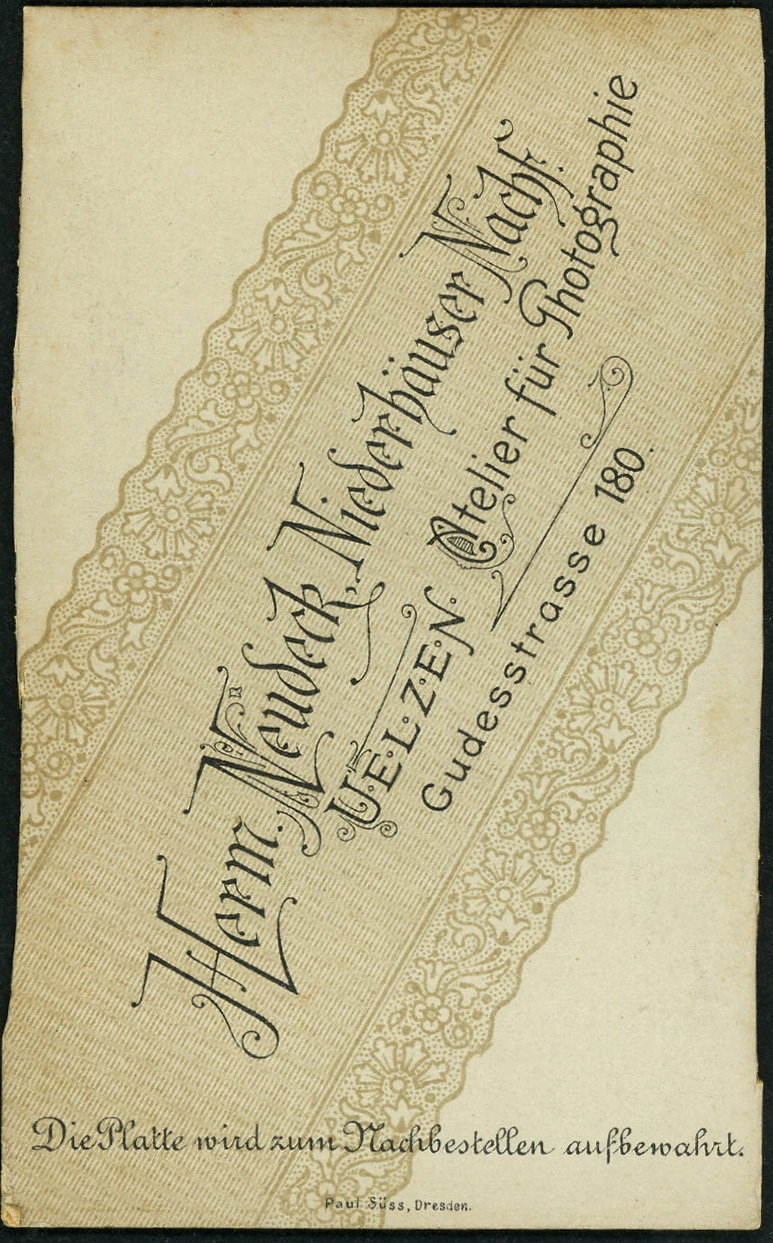 Herm. Neudeck, Niederhäuser Nachf.
UELZEN.
Atelier für Photographie
Gudesstrasse 180.
Die Platte wird zum Nachbestellen aufbewahrt.
Paul Süss, Dresden.